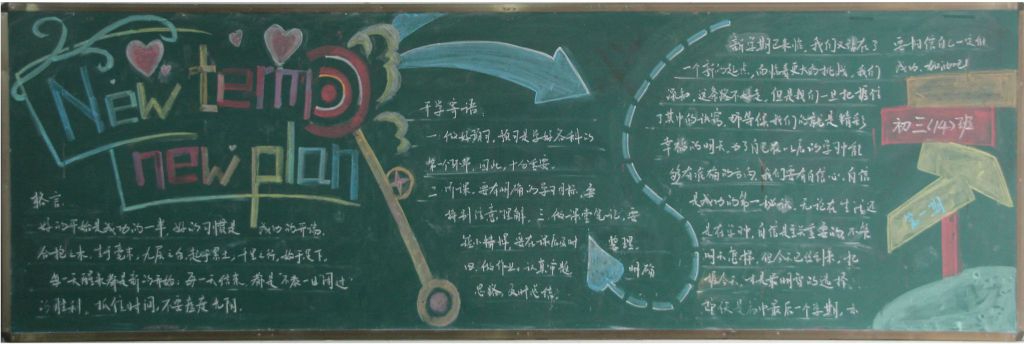 New term
new plan
格言:
好的开始是成功的一半,好的习惯是成功的开端。
合抱之木,生于毫末,九层之台,起于累土,千里之行,始于足下。
每一天醒来都是新的开始,每一天结束,都是不
的胜利。抓住时间,不要虚度光阴。
开学寄语:
一. 做好预习,预习是学好各科的
第一个环节,因此,十分重要。
二. 听课,要有明确的学习目标,要
特别注意理解。三. 做课堂笔记,要
整理。
四. 做作业,认真审题 明确
思路,及时总结。
新学期已来临,我们又站在了
一个新的起点,面临着更大的挑战,我们
深知,这条路不好走,但是我们一旦把握住
了其中的诀窍,那等候我们的就是精彩
幸福的明天。为了自己在以后的学习中能
够有准确的方向,我们要有自信心,自信
是成功的第一秘诀。无论在生活还
是在学习中,自信是至关重要的,不管
昨天怎样,但今天已经到来,把
握今天,才是最明智的选择。
即使是初中最后一个学期,亦
要相信自己一定能
成功,加油吧!
初三(14)班
第一期